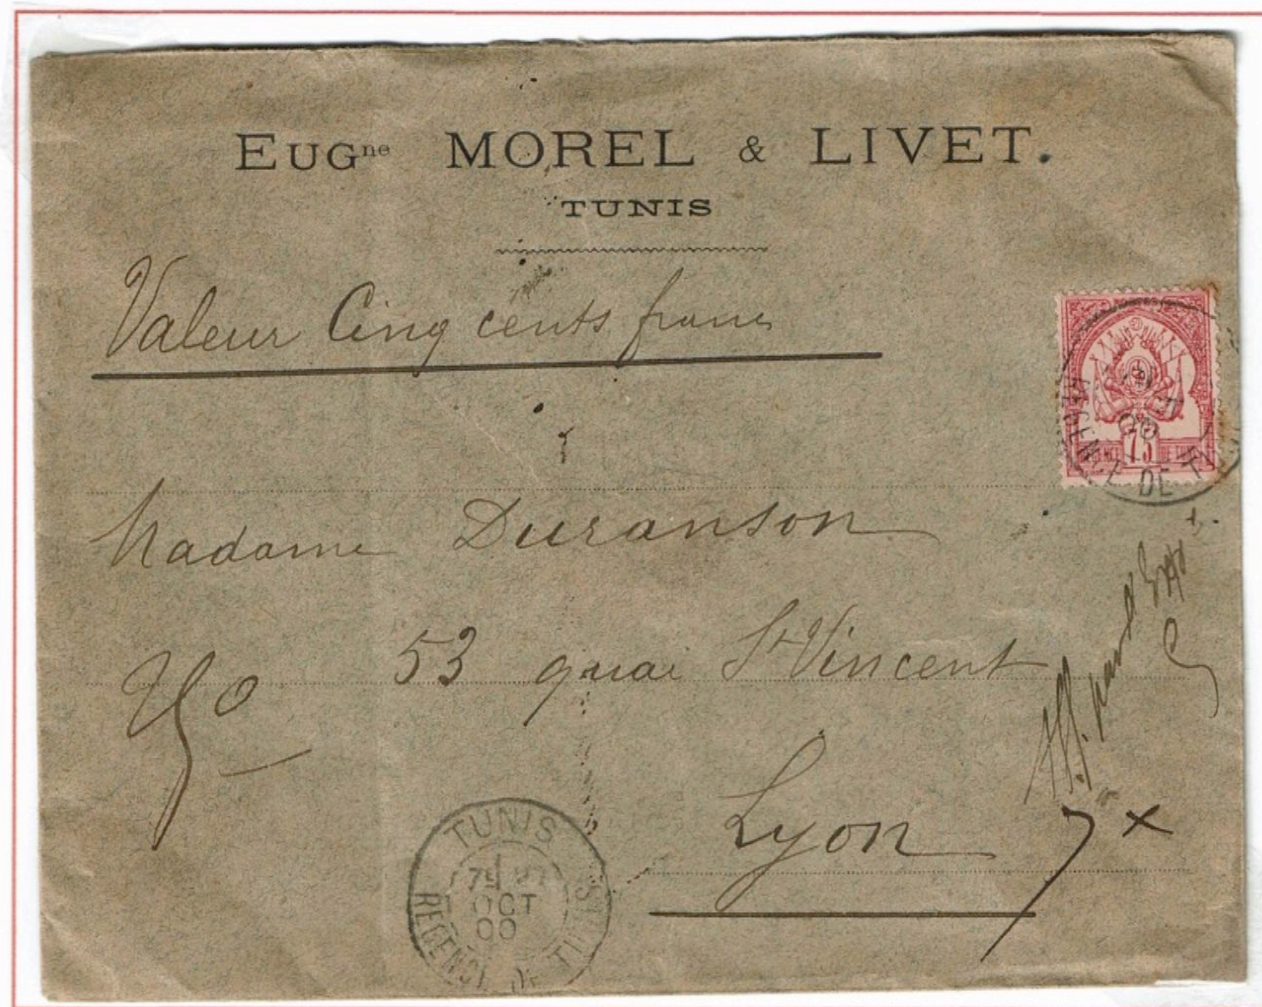 EUGne MOREL & LIVET.
TUNIS
Valeur Cinq cents francs
75
DE
OCT
00
Madame Duranson
53 quai St Vincent
Lyon
Aff. par l'Exp
7 x
TUNIS
OCT
00
REGENCE DE TUNIS